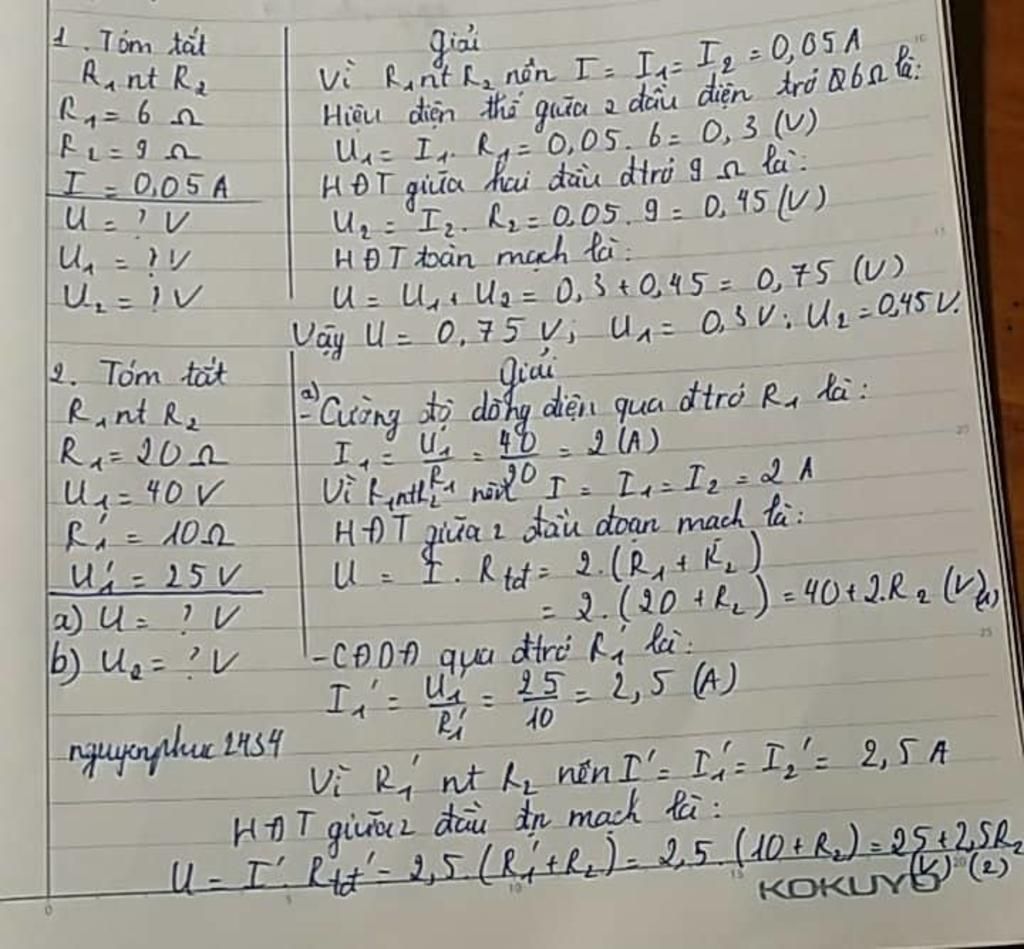 1. Tóm tắt
R₁ nt R₂
R₁ = 6 Ω
R₂ = 9 Ω
I = 0,05 A
U = ? V
U₁ = ? V
U₂ = ? V
Giải
Vì R₁ nt R₂ nên I = I₁ = I₂ = 0,05 A
Hiệu điện thế giữa 2 đầu điện trở 6 Ω là:
U₁ = I₁. R₁ = 0,05. 6 = 0,3 (V)
HĐT giữa hai đầu đtrở 9 Ω là:
U₂ = I₂. R₂ = 0,05. 9 = 0,45 (V)
HĐT toàn mạch là:
U = U₁ + U₂ = 0,3 + 0,45 = 0,75 (V)
Vậy U = 0,75 V; U₁ = 0,3 V; U₂ = 0,45 V.
2. Tóm tắt
R₁ nt R₂
R₁ = 20 Ω
U₁ = 40 V
R₁' = 10 Ω
U₁' = 25 V
a) U = ? V
b) U₂ = ? V
nguyenphuc2434
Giải
a) - Cường độ dòng điện qua đtrở R₁ là:
I₁ = U₁/R₁ = 40/20 = 2 (A)
Vì R₁ nt R₂ nên I = I₁ = I₂ = 2 A
HĐT giữa 2 đầu đoạn mạch là:
U = I. Rtđ = 2. (R₁ + R₂)
= 2. (20 + R₂) = 40 + 2.R₂ (V) (1)
- CĐDĐ qua đtrở R₁' là:
I₁' = U₁'/R₁' = 25/10 = 2,5 (A)
Vì R₁' nt R₂ nên I' = I₁' = I₂' = 2,5 A
HĐT giữa 2 đầu đn mạch là:
U = I'. Rtđ' = 2,5. (R₁' + R₂) = 2,5. (10 + R₂) = 25 + 2,5R₂
(V) (2)
KOKUYO